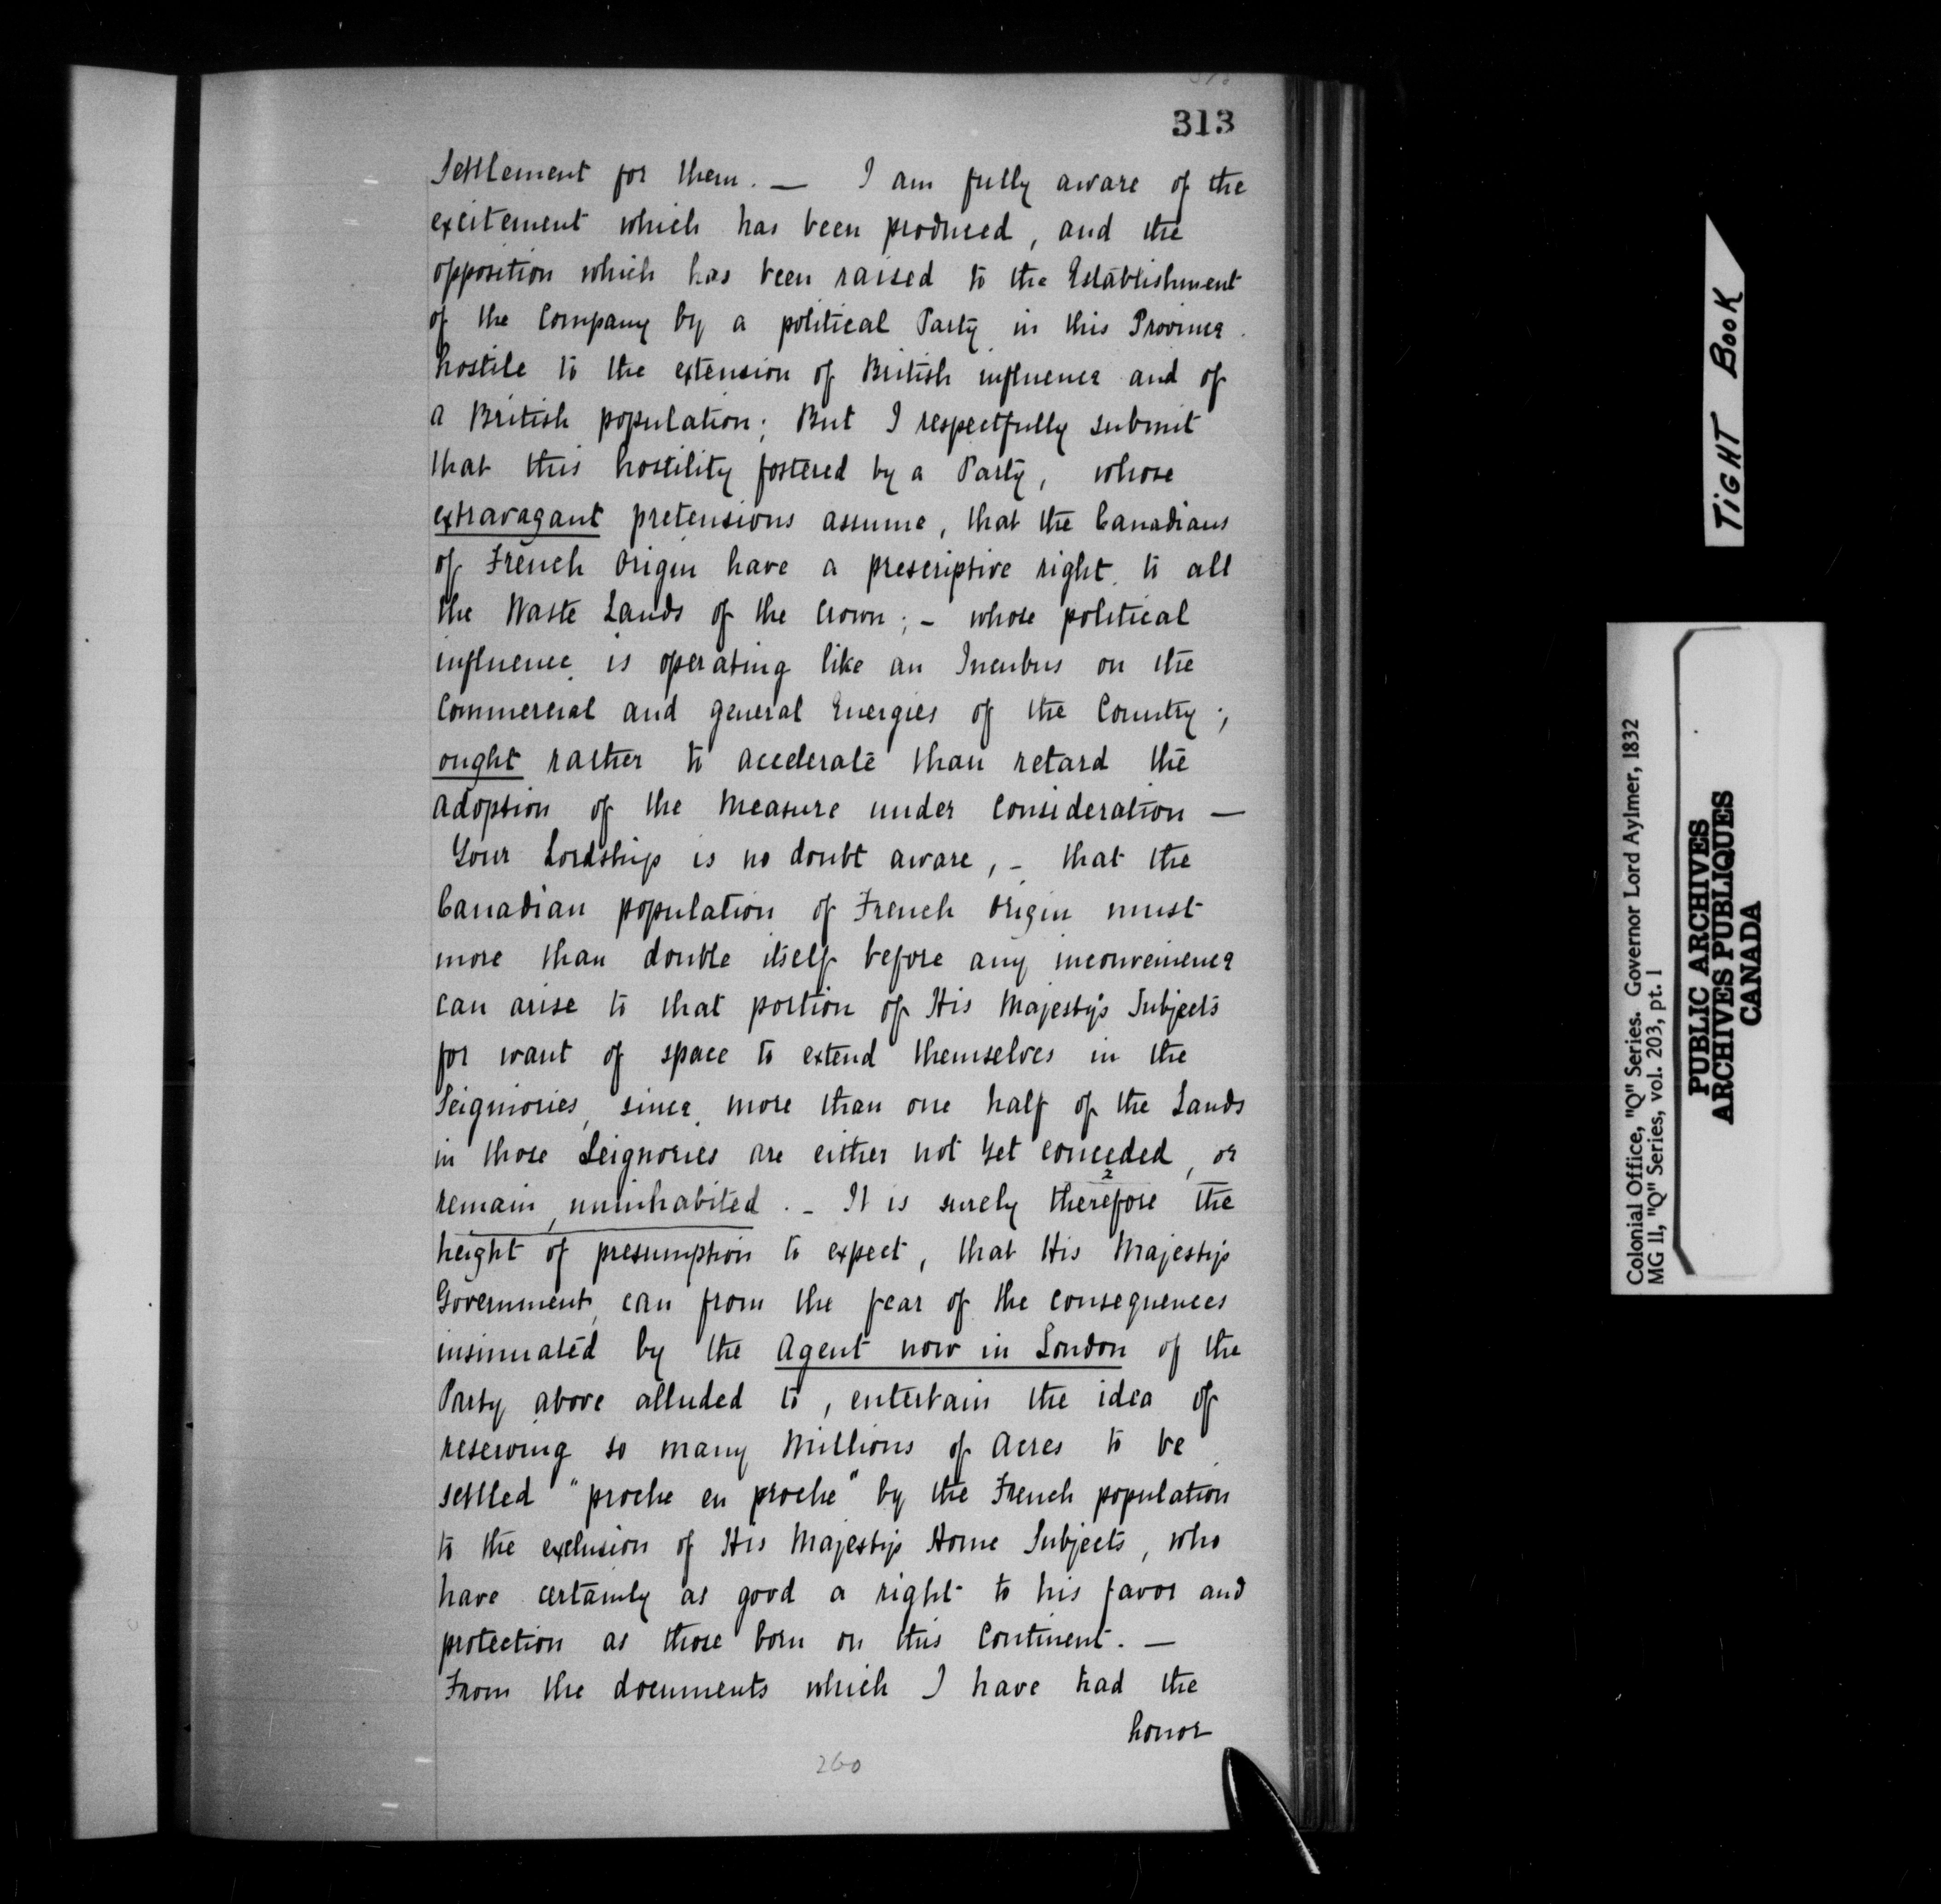 313
Settlement for them. — I am fully aware of the
excitement which has been produced, and the
opposition which has been raised to the Establishment
of the Company by a political Party in this Province
hostile to the extension of British influence and of
a British population; But I respectfully submit
that this hostility fostered by a Party, whose
extravagant pretensions assume, that the Canadians
of French Origin have a prescriptive right to all
the Waste Lands of the Crown; - whose political
influence is operating like an Incubus on the
Commercial and general Energies of the Country;
ought rather to accelerate than retard the
adoption of the Measure under Consideration —
Your Lordship is no doubt aware, - that the
Canadian population of French Origin must
more than double itself before any inconvenience
can arise to that portion of His Majesty's Subjects
for want of space to extend themselves in the
Seigniories, since more than one half of the Lands
in those Seignories are either not yet conceeded, or
remain, uninhabited. - It is surely therefore the
height of presumption to expect, that His Majesty's
Government, can from the fear of the consequences
insinuated by the Agent now in London of the
Party above alluded to, entertain the idea of
reserving so many Millions of Acres to be
settled "proche en proche" by the French population
to the exclusion of His Majesty's Home Subjects, who
have certainly as good a right to his favor and
protection as those born on this Continent. —
From the documents which I have had the
honor
260
TIGHT BOOK
Colonial Office, "Q" Series. Governor Lord Aylmer, 1832
MG 11, "Q" Series, vol. 203, pt. 1
PUBLIC ARCHIVES
ARCHIVES PUBLIQUES
CANADA